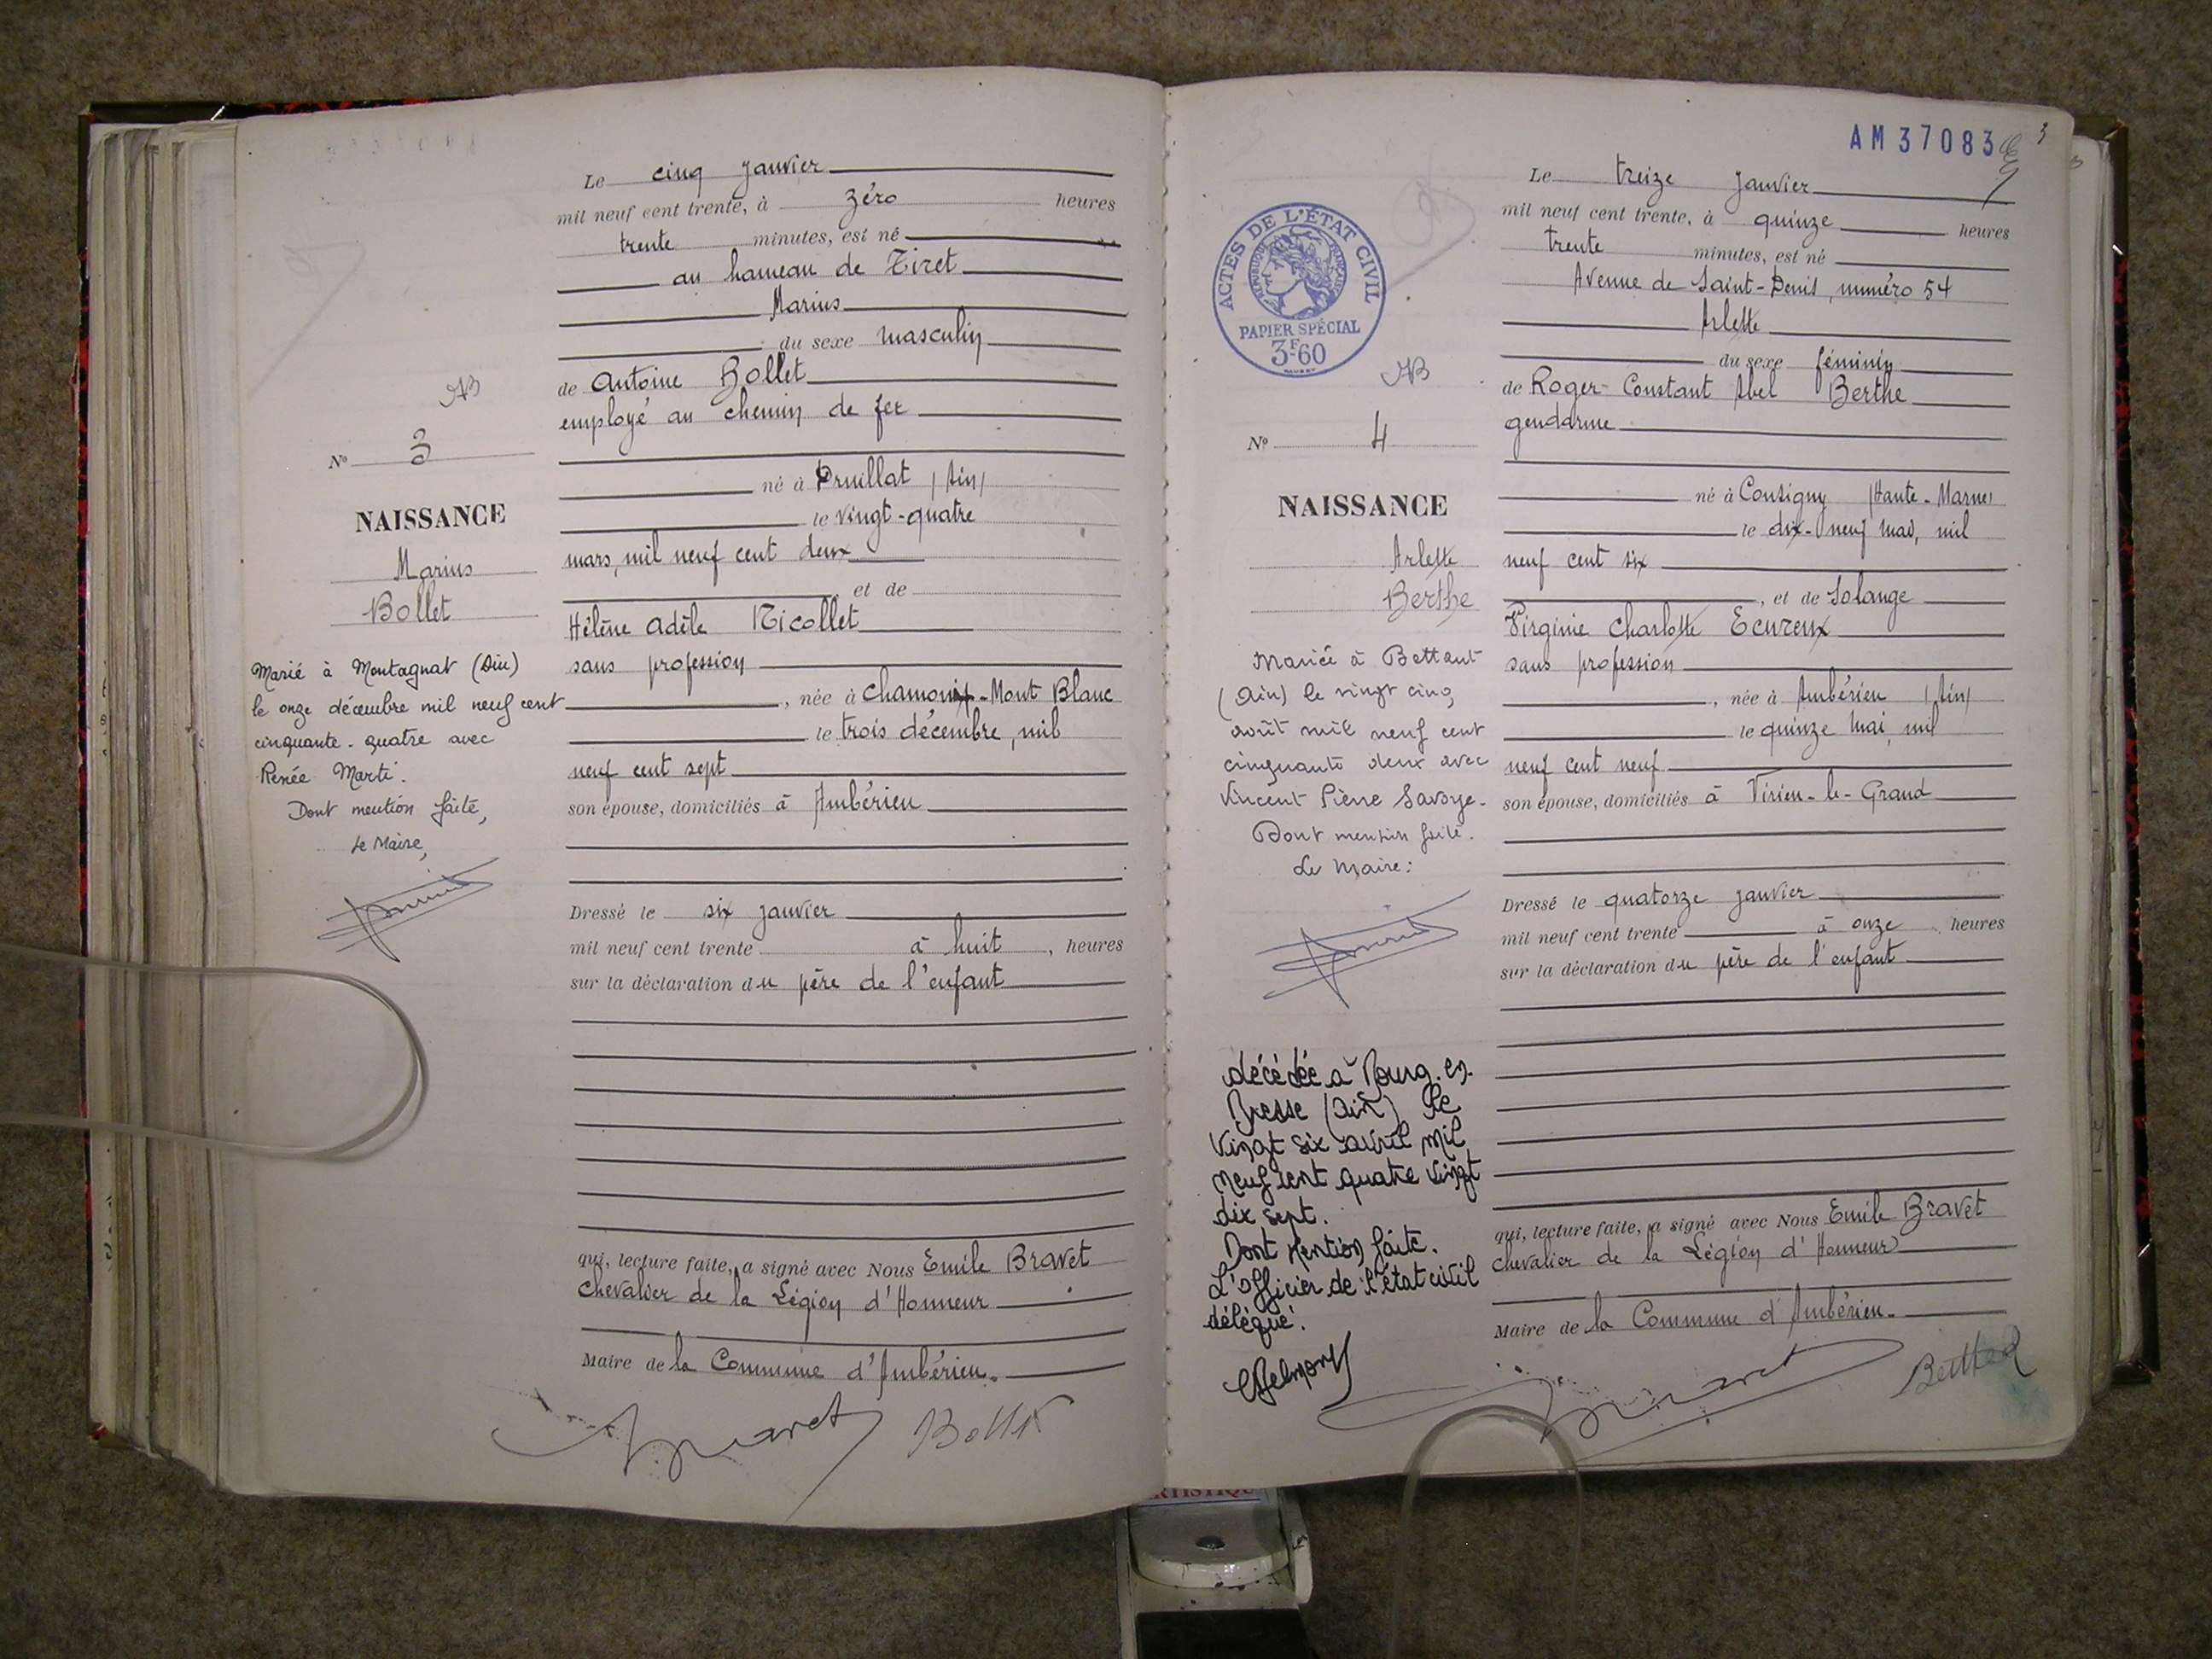 Le cinq janvier
mil neuf cent trente, à zéro heures
trente minutes, est né
au hameau de Tiret
Marius
du sexe masculin
de Antoine Bollet
employé au chemin de fer
AB
N° 3
né à Druillat (Ain)
NAISSANCE
le vingt-quatre
mars, mil neuf cent deux
Marius
Bollet
et de
Hélène Adèle Nicollet
sans profession
, née à Chamonix-Mont Blanc
le trois décembre, mil
neuf cent sept
son épouse, domiciliés à Ambérieu
Marié à Montagnat (Ain)
le onze décembre mil neuf cent
cinquante-quatre avec
Renée Marti.
Dont mention faite,
Le Maire,
Dressé le six janvier
mil neuf cent trente à huit, heures
sur la déclaration du père de l'enfant
qui, lecture faite, a signé avec Nous Emile Bravet
Chevalier de la Légion d'Honneur
Maire de la Commune d'Ambérieu.
Bravet Bollet
AM 37083
3
ACTES DE L'ÉTAT CIVIL
RÉPUBLIQUE FRANÇAISE
PAPIER SPÉCIAL
3F60
Le treize janvier
mil neuf cent trente, à quinze heures
trente minutes, est né
Avenue de Saint-Denis, numéro 54
Arlette
du sexe féminin
de Roger Constant Abel Berthe
gendarme
AB
N° 4
né à Consigny (Haute-Marne)
NAISSANCE
le dix-neuf mai, mil
neuf cent six
Arlette
Berthe
, et de Solange
Virginie Charlotte Ecureux
sans profession
, née à Ambérieu (Ain)
le quinze mai, mil
neuf cent neuf
son épouse, domiciliés à Virieu-le-Grand
Mariée à Bettant
(Ain) le vingt cinq
août mil neuf cent
cinquante deux avec
Vincent Pierre Savoye.
Dont mention faite.
Le Maire:
Dressé le quatorze janvier
mil neuf cent trente à onze, heures
sur la déclaration du père de l'enfant
décédée à Bourg.en.
Bresse (Ain) le
Vingt six avril mil
neuf cent quatre vingt
dix sept.
Dont mention faite.
L'officier de l'état civil
délégué.
qui, lecture faite, a signé avec Nous Emile Bravet
Chevalier de la Légion d'Honneur
Maire de la Commune d'Ambérieu.
Bravet Berthe